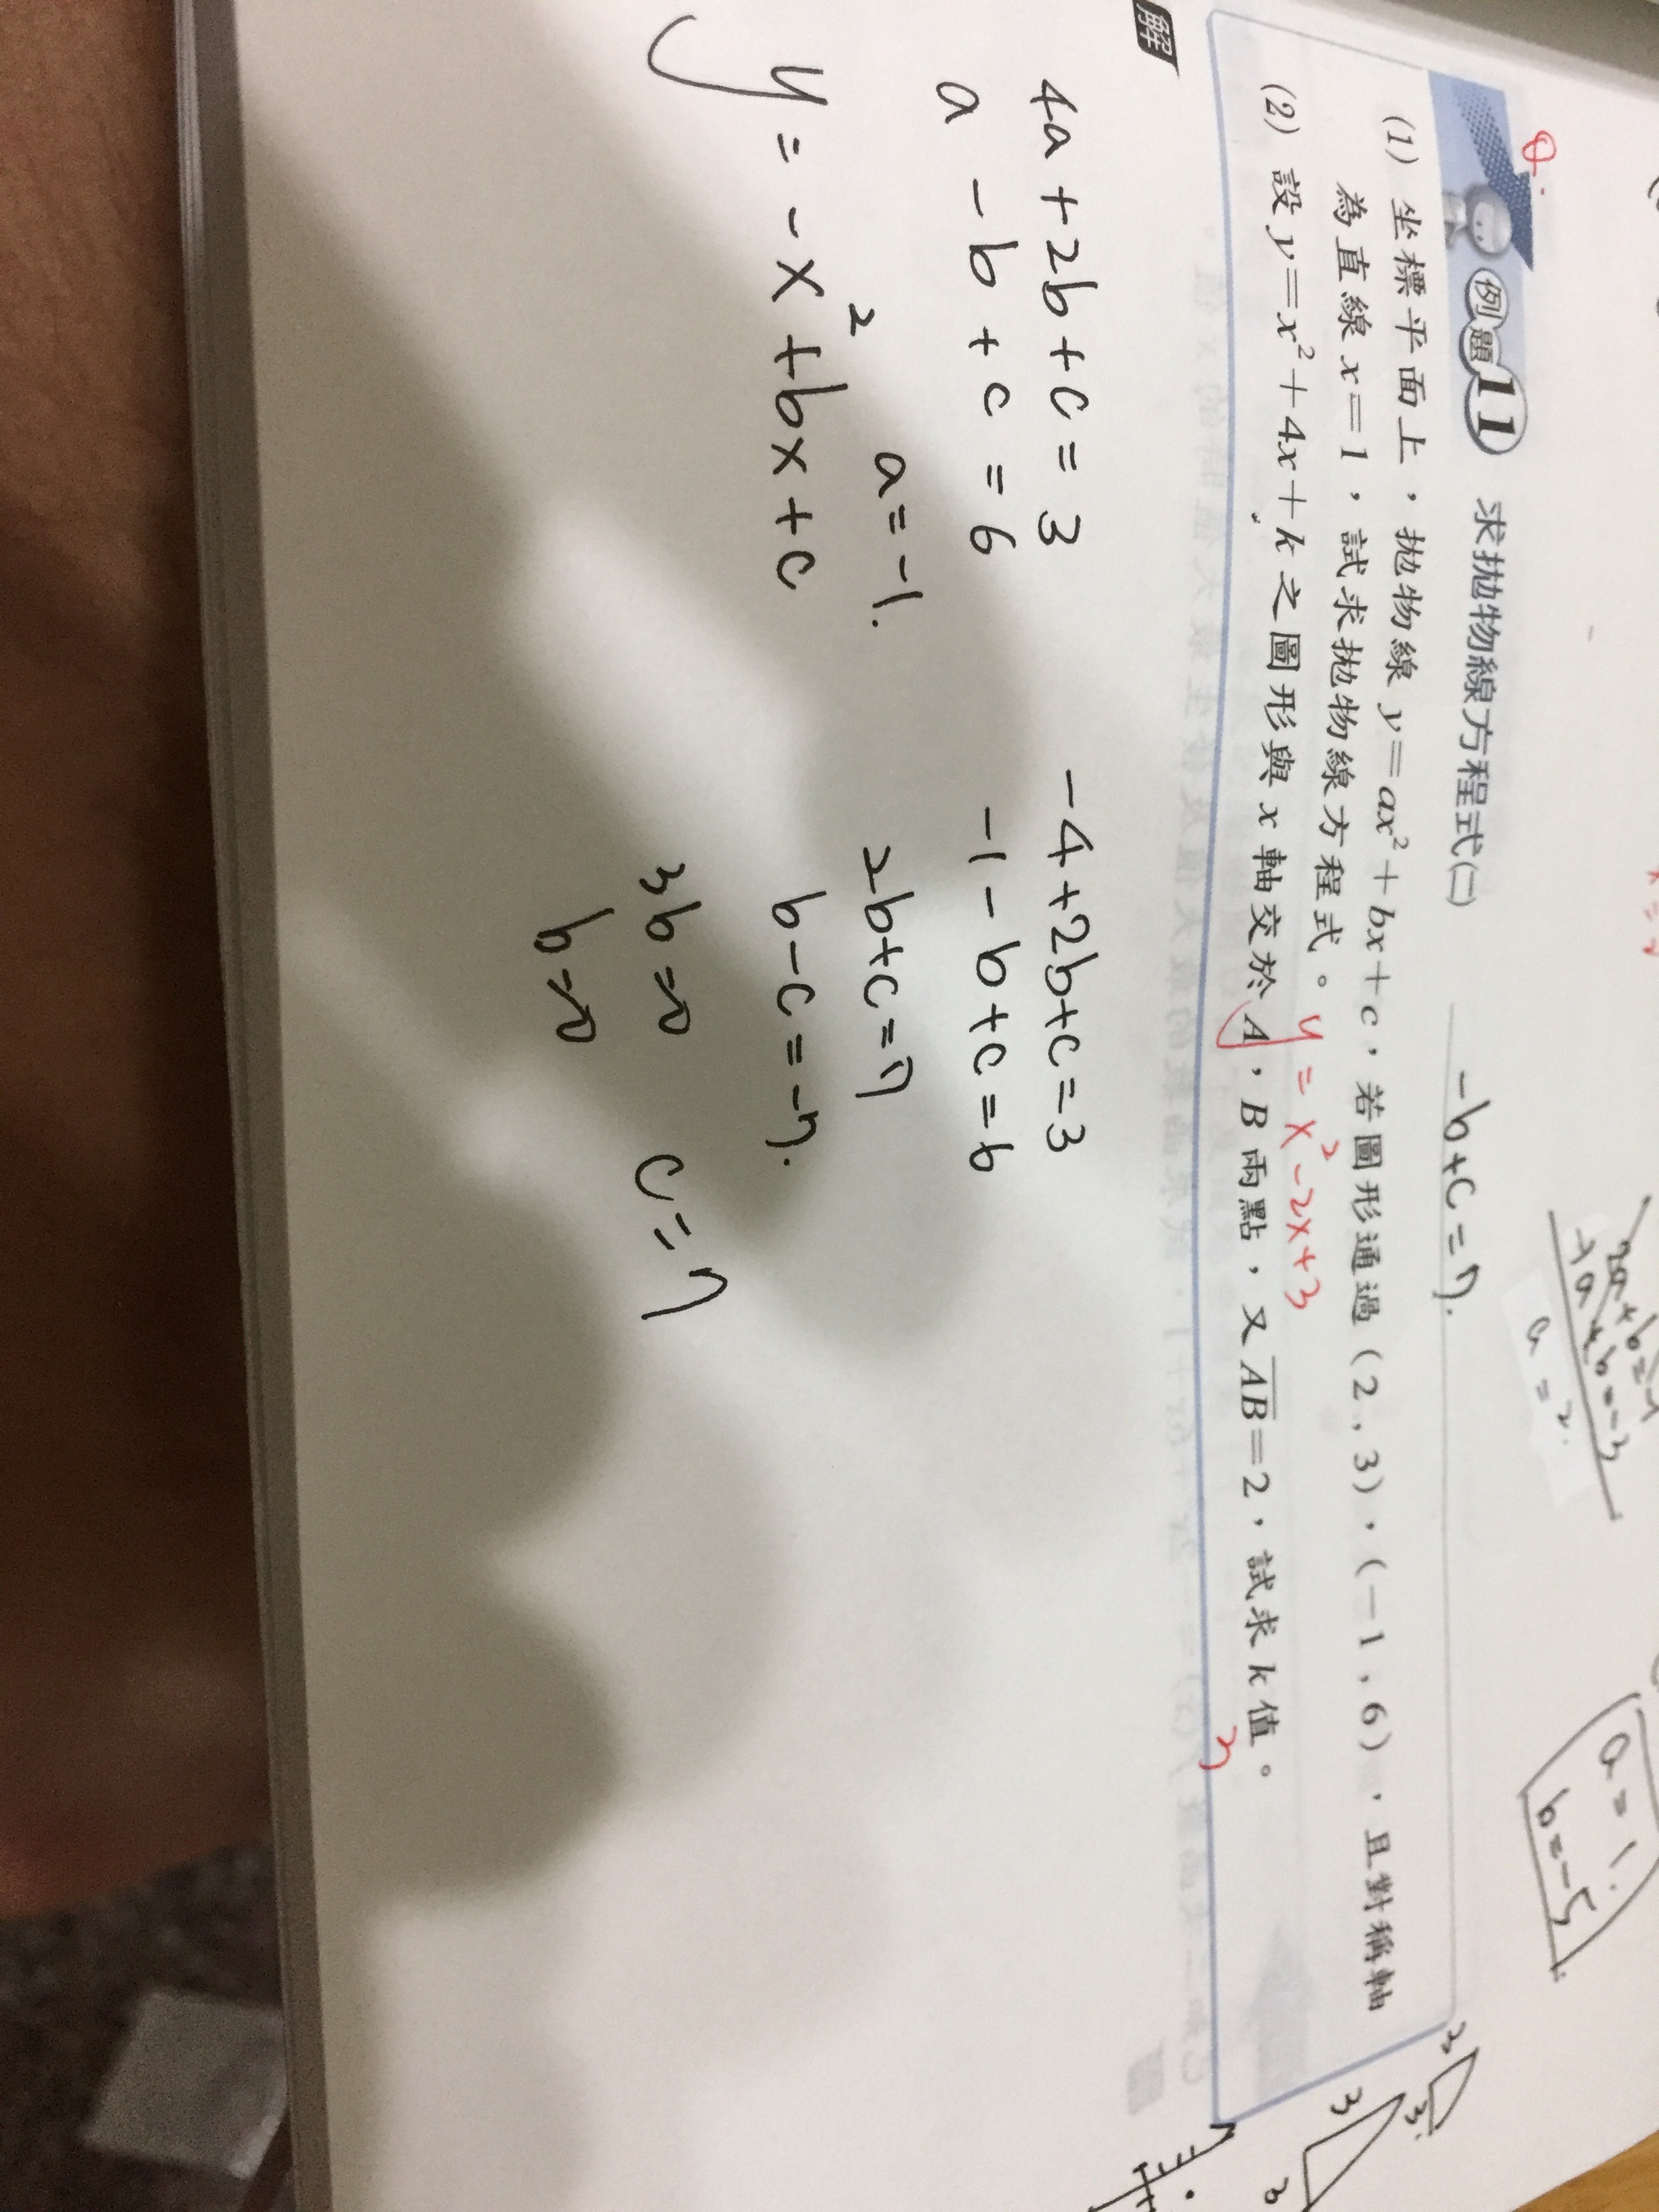 2a+b=-1
-)a+b=-3
a=2.
a=1.
b=-5
-b+c=7.
Q.
例題11 求拋物線方程式(二)
(1) 坐標平面上，拋物線 y=ax²+bx+c，若圖形通過(2,3)、(-1,6)，且對稱軸
為直線 x=1，試求拋物線方程式。 y=x²-2x+3
(2) 設 y=x²+4x+k 之圖形與 x 軸交於 A，B 兩點，又 AB=2，試求 k 值。
3
解
4a+2b+c=3
a-b+c=6
a=-1.
y=-x²+bx+c
-4+2b+c=3
-1-b+c=6
2b+c=7
b-c=-7.
3b=0
b=0
c=7
3
3
3
3